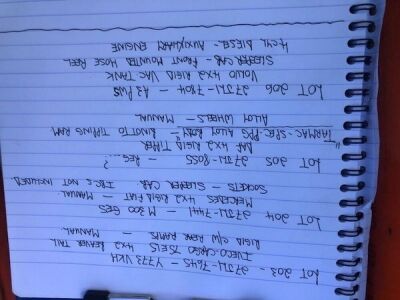 LOT 203 - 27JU-7645 - Y773 VKH
IVECO-CARGO 75E15 4x2 BEAVER TAIL
RIGID C/W REAR RAMPS MANUAL
LOT 204 - 27JU-7441 - M 300 GES
MERCEDES 4x2 RIGID FLAT - MANUAL
SOCKETS - SLEEPER CAB. IBC'S NOT INCLUDED.
LOT 205 27JU-8055 - REG-----?
DAF 4x2 RIGID TIPPER
"TARMAC-SPEC-PPG ALLOY BODY" BINOTTO TIPPING RAM
ALLOY WHEELS - MANUAL
LOT 206 27JU-7804 - A2 PWS
VOLVO 4x2 RIGID VAC TANK
SLEEPER CAB - FRONT MOUNTED HOSE REEL
4CYL DIESEL - AUXILIARY ENGINE